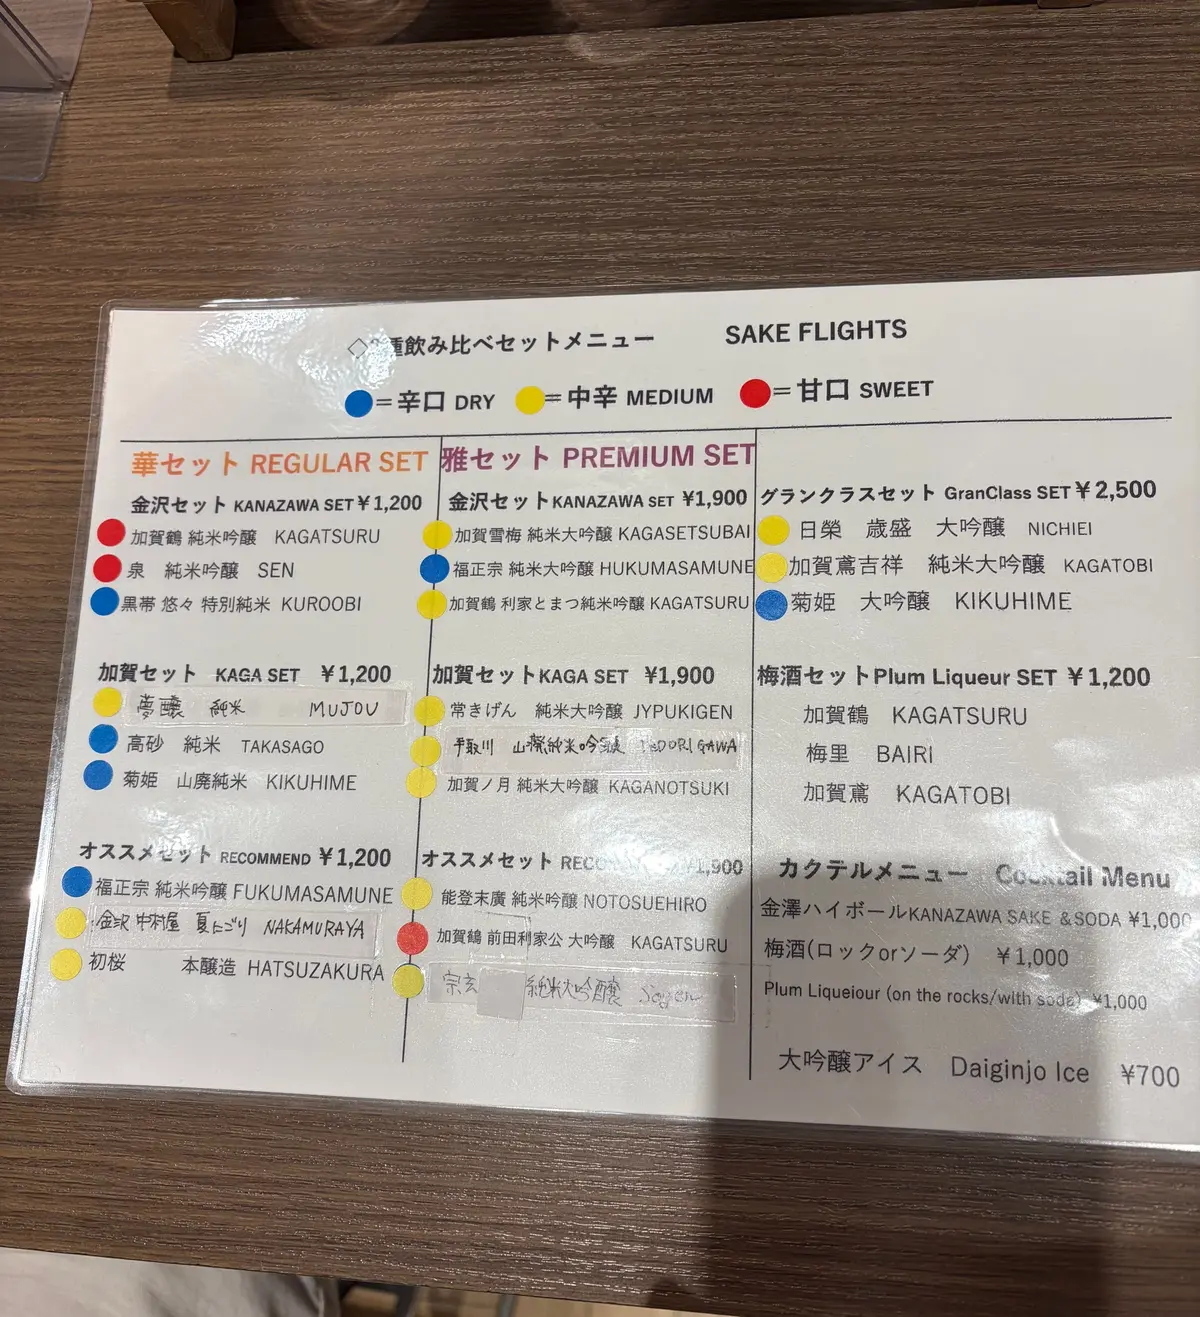 ◇ 種飲み比べセットメニュー SAKE FLIGHTS
=辛口 DRY =中辛 MEDIUM =甘口 SWEET
華セット REGULAR SET
金沢セット KANAZAWA SET ¥1,200
加賀鶴 純米吟醸 KAGATSURU
泉 純米吟醸 SEN
黒帯 悠々 特別純米 KUROOBI
加賀セット KAGA SET ¥1,200
夢醸 純米 MUJOU
高砂 純米 TAKASAGO
菊姫 山廃純米 KIKUHIME
オススメセット RECOMMEND ¥1,200
福正宗 純米吟醸 FUKUMASAMUNE
金沢 中村屋 夏にごり NAKAMURAYA
初桜 本醸造 HATSUZAKURA
雅セット PREMIUM SET
金沢セット KANAZAWA SET ¥1,900
加賀雪梅 純米大吟醸 KAGASETSUBAI
福正宗 純米大吟醸 HUKUMASAMUNE
加賀鶴 利家とまつ純米吟醸 KAGATSURU
加賀セット KAGA SET ¥1,900
常きげん 純米大吟醸 JYPUKIGEN
手取川 山廃純米吟醸 TEDORIGAWA
加賀ノ月 純米大吟醸 KAGANOTSUKI
オススメセット ¥1,900
能登末廣 純米吟醸 NOTOSUEHIRO
加賀鶴 前田利家公 大吟醸 KAGATSURU
宗玄 純米大吟醸 Sogen
グランクラスセット GranClass SET ¥2,500
日榮 歳盛 大吟醸 NICHIEI
加賀鳶吉祥 純米大吟醸 KAGATOBI
菊姫 大吟醸 KIKUHIME
梅酒セット Plum Liqueur SET ¥1,200
加賀鶴 KAGATSURU
梅里 BAIRI
加賀鳶 KAGATOBI
カクテルメニュー Cocktail Menu
金澤ハイボール KANAZAWA SAKE & SODA ¥1,000
梅酒(ロックorソーダ) ¥1,000
Plum Liqueiour (on the rocks/with soda) ¥1,000
大吟醸アイス Daiginjo Ice ¥700